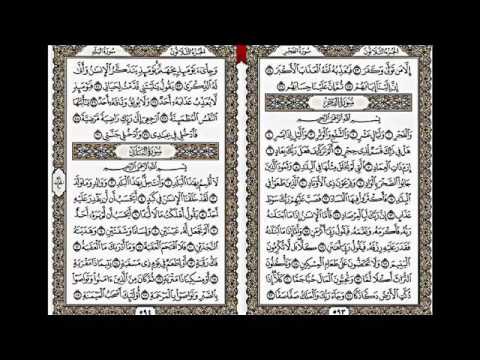 سُورَةُ الفَجْرِ
الجُزْءُ الثَّلَاثُونَ
إِلَّا مَن تَوَلَّىٰ وَكَفَرَ ٢٣ فَيُعَذِّبُهُ ٱللَّهُ ٱلْعَذَابَ ٱلْأَكْبَرَ ٢٤
إِنَّ إِلَيْنَآ إِيَابَهُمْ ٢٥ ثُمَّ إِنَّ عَلَيْنَا حِسَابَهُم ٢٦
سُورَةُ الفَجْرِ
بِسْمِ ٱللَّهِ ٱلرَّحْمَٰنِ ٱلرَّحِيمِ
وَٱلْفَجْرِ ١ وَلَيَالٍ عَشْرٍ ٢ وَٱلشَّفْعِ وَٱلْوَتْرِ ٣ وَٱلَّيْلِ إِذَا يَسْرِ ٤
هَلْ فِي ذَٰلِكَ قَسَمٌ لِّذِي حِجْرٍ ٥ أَلَمْ تَرَ كَيْفَ فَعَلَ رَبُّكَ بِعَادٍ ٦
إِرَمَ ذَاتِ ٱلْعِمَادِ ٧ ٱلَّتِي لَمْ يُخْلَقْ مِثْلُهَا فِي ٱلْبِلَٰدِ ٨ وَثَمُودَ ٱلَّذِينَ
جَابُوا۟ ٱلصَّخْرَ بِٱلْوَادِ ٩ وَفِرْعَوْنَ ذِي ٱلْأَوْتَادِ ١٠ ٱلَّذِينَ طَغَوْا۟ فِي
ٱلْبِلَٰدِ ١١ فَأَكْثَرُوا۟ فِيهَا ٱلْفَسَادَ ١٢ فَصَبَّ عَلَيْهِمْ رَبُّكَ سَوْطَ
عَذَابٍ ١٣ إِنَّ رَبَّكَ لَبِٱلْمِرْصَادِ ١٤ فَأَمَّا ٱلْإِنسَٰنُ إِذَا مَا ٱبْتَلَىٰهُ رَبُّهُ
فَأَكْرَمَهُ وَنَعَّمَهُ فَيَقُولُ رَبِّي أَكْرَمَنِ ١٥ وَأَمَّآ إِذَا مَا ٱبْتَلَىٰهُ
فَقَدَرَ عَلَيْهِ رِزْقَهُ فَيَقُولُ رَبِّي أَهَٰنَنِ ١٦ كَلَّا بَل لَّا تُكْرِمُونَ
ٱلْيَتِيمَ ١٧ وَلَا تَحَٰٓضُّونَ عَلَىٰ طَعَامِ ٱلْمِسْكِينِ ١٨ وَتَأْكُلُونَ
ٱلتُّرَاثَ أَكْلًا لَّمًّا ١٩ وَتُحِبُّونَ ٱلْمَالَ حُبًّا جَمًّا ٢٠ كَلَّآ إِذَا
دُكَّتِ ٱلْأَرْضُ دَكًّا دَكًّا ٢١ وَجَآءَ رَبُّكَ وَٱلْمَلَكُ صَفًّا صَفًّا ٢٢
٥٩٣
الجُزْءُ الثَّلَاثُونَ
سُورَةُ البَلَدِ
وَجِا۟يٓءَ يَوْمَئِذٍۭ بِجَهَنَّمَ يَوْمَئِذٍ يَتَذَكَّرُ ٱلْإِنسَٰنُ وَأَنَّىٰ
لَهُ ٱلذِّكْرَىٰ ٢٣ يَقُولُ يَٰلَيْتَنِي قَدَّمْتُ لِحَيَاتِي ٢٤ فَيَوْمَئِذٍ
لَّا يُعَذِّبُ عَذَابَهُ أَحَدٌ ٢٥ وَلَا يُوثِقُ وَثَاقَهُ أَحَدٌ ٢٦ يَٰٓأَيَّتُهَا
ٱلنَّفْسُ ٱلْمُطْمَئِنَّةُ ٢٧ ٱرْجِعِيٓ إِلَىٰ رَبِّكِ رَاضِيَةً مَّرْضِيَّةً ٢٨
فَٱدْخُلِي فِي عِبَٰدِي ٢٩ وَٱدْخُلِي جَنَّتِي ٣٠
سُورَةُ البَلَدِ
بِسْمِ ٱللَّهِ ٱلرَّحْمَٰنِ ٱلرَّحِيمِ
لَآ أُقْسِمُ بِهَٰذَا ٱلْبَلَدِ ١ وَأَنتَ حِلٌّۢ بِهَٰذَا ٱلْبَلَدِ ٢ وَوَالِدٍ وَمَا وَلَدَ ٣
لَقَدْ خَلَقْنَا ٱلْإِنسَٰنَ فِي كَبَدٍ ٤ أَيَحْسَبُ أَن لَّن يَقْدِرَ عَلَيْهِ
أَحَدٌ ٥ يَقُولُ أَهْلَكْتُ مَالًا لُّبَدًا ٦ أَيَحْسَبُ أَن لَّمْ يَرَهُ أَحَدٌ ٧
أَلَمْ نَجْعَل لَّهُ عَيْنَيْنِ ٨ وَلِسَانًا وَشَفَتَيْنِ ٩ وَهَدَيْنَٰهُ
ٱلنَّجْدَيْنِ ١٠ فَلَا ٱقْتَحَمَ ٱلْعَقَبَةَ ١١ وَمَآ أَدْرَىٰكَ مَا ٱلْعَقَبَةُ ١٢
فَكُّ رَقَبَةٍ ١٣ أَوْ إِطْعَٰمٌ فِي يَوْمٍ ذِي مَسْغَبَةٍ ١٤ يَتِيمًا ذَا مَقْرَبَةٍ
١٥ أَوْ مِسْكِينًا ذَا مَتْرَبَةٍ ١٦ ثُمَّ كَانَ مِنَ ٱلَّذِينَ ءَامَنُوا۟ وَتَوَاصَوْا۟
بِٱلصَّبْرِ وَتَوَاصَوْا۟ بِٱلْمَرْحَمَةِ ١٧ أُو۟لَٰٓئِكَ أَصْحَٰبُ ٱلْمَيْمَنَةِ ١٨
٥٩٤